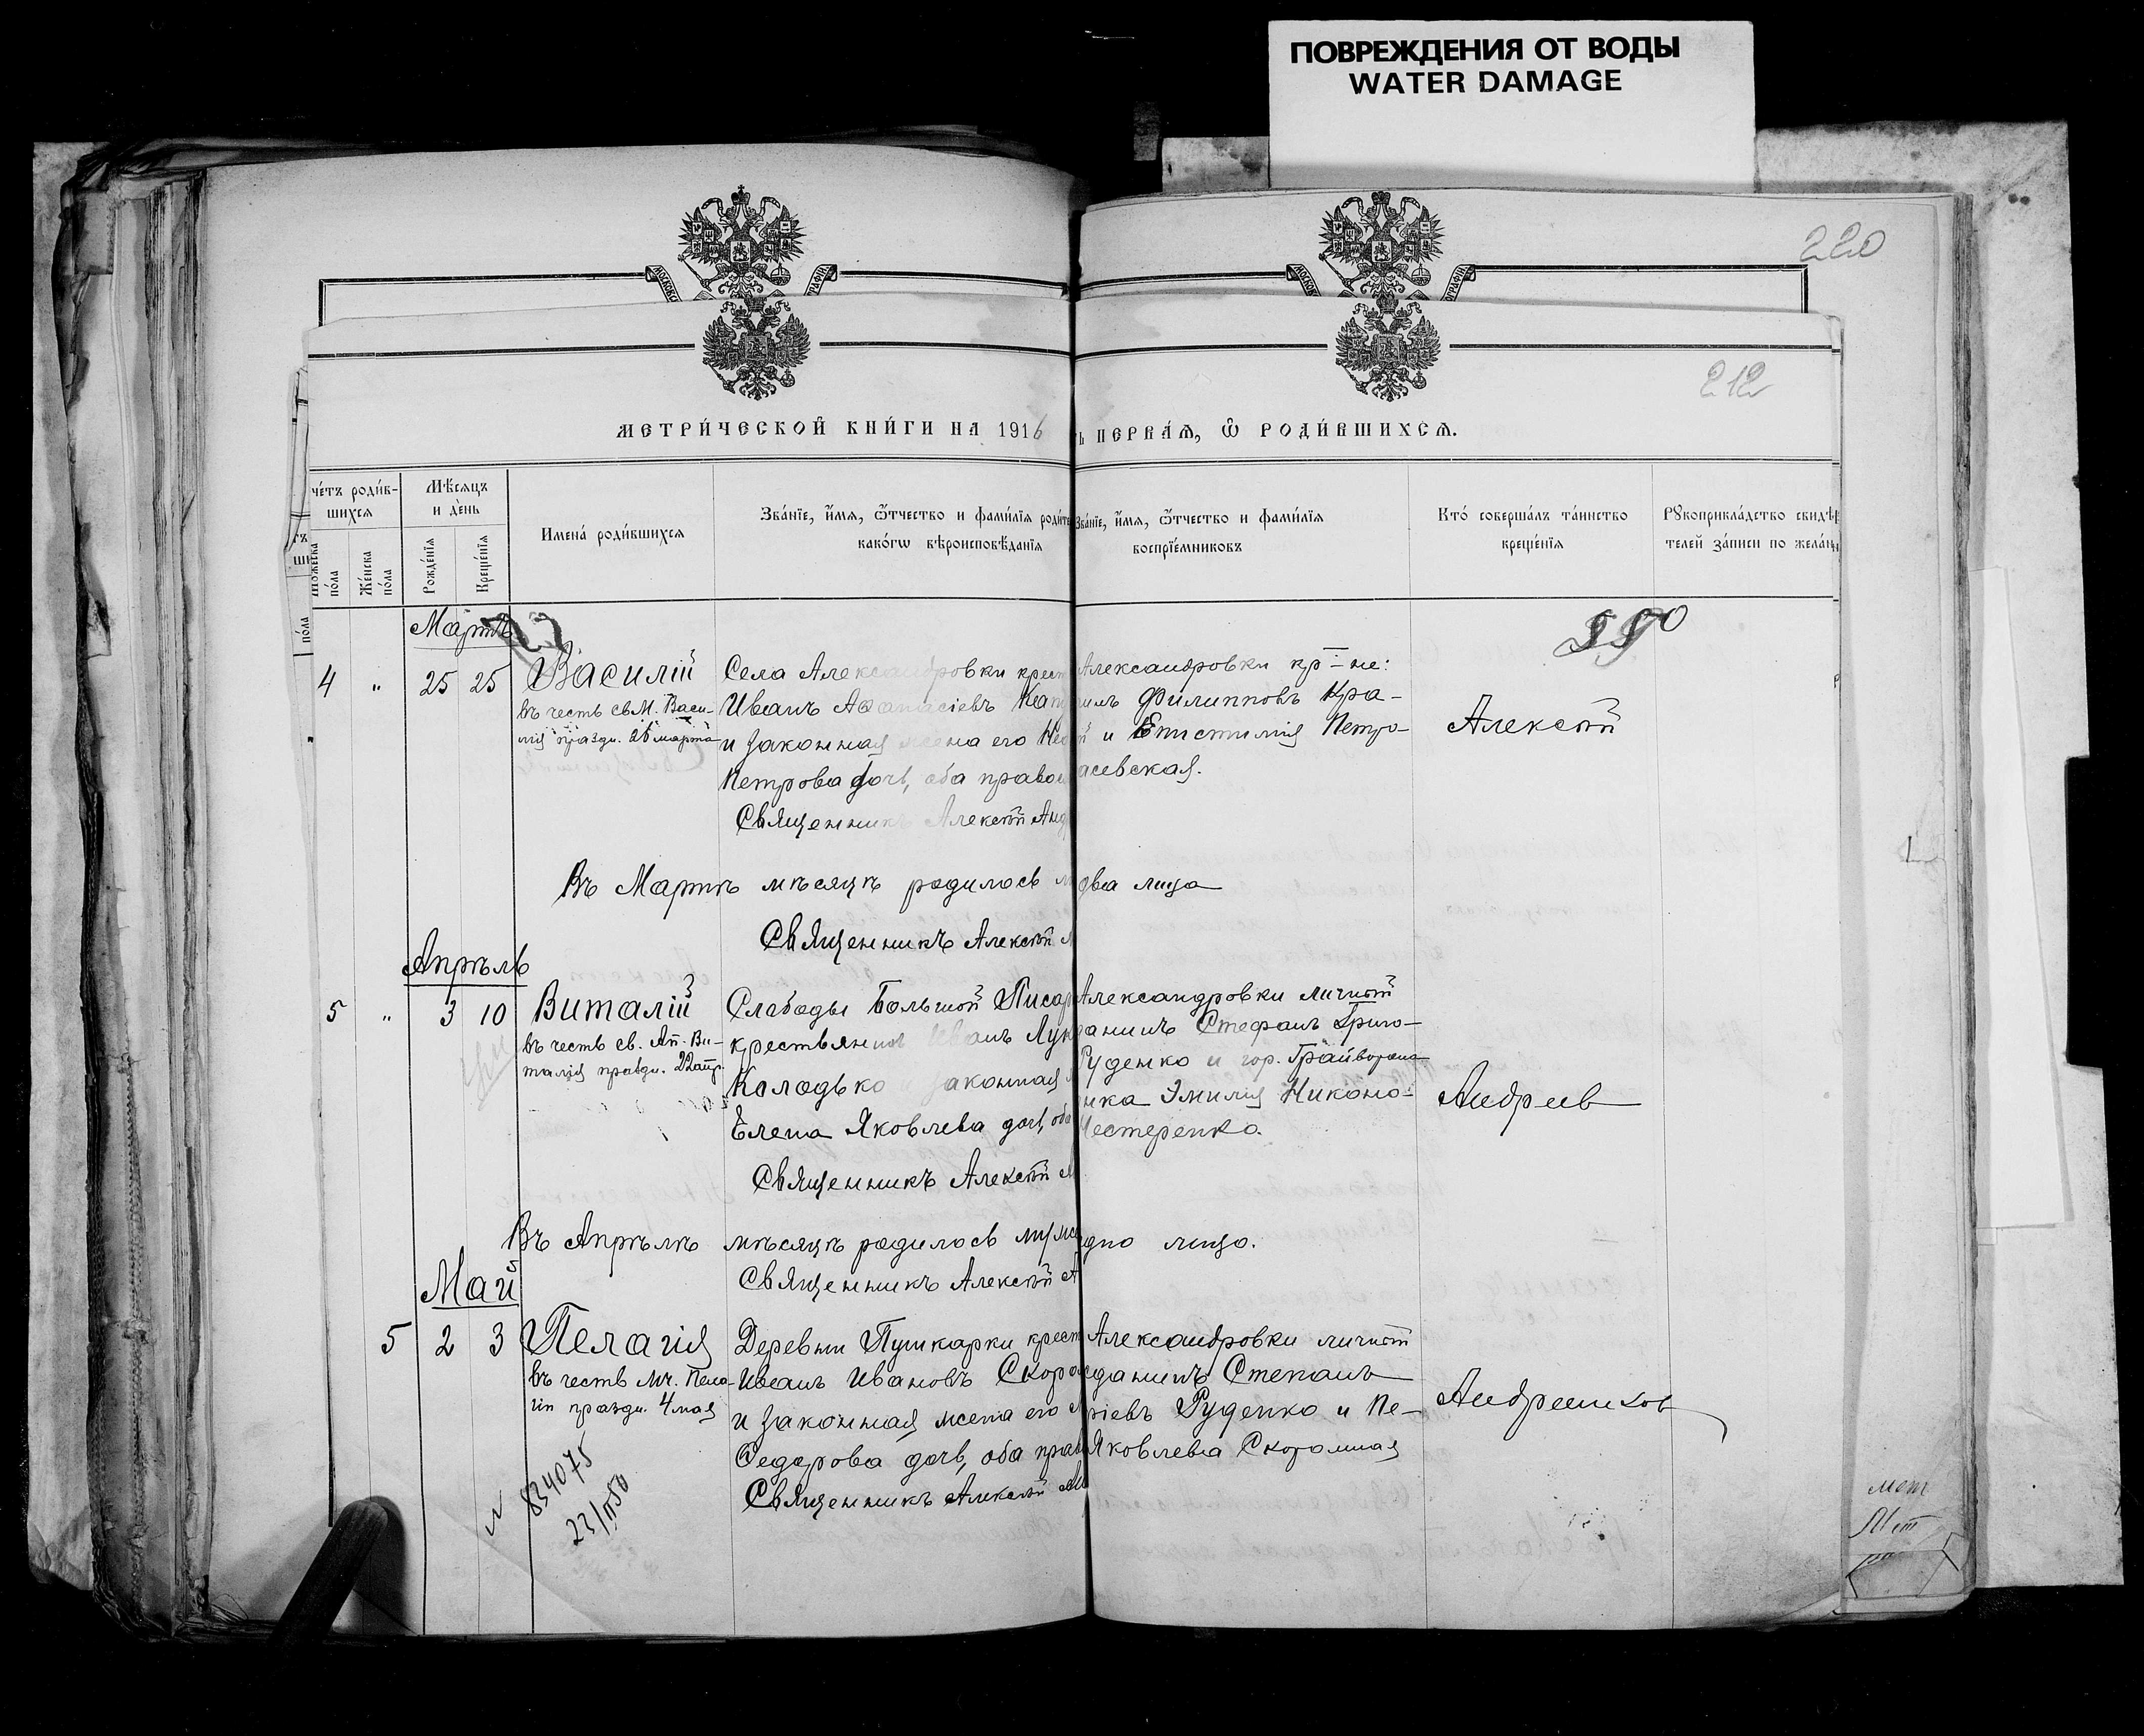 ПОВРЕЖДЕНИЯ ОТ ВОДЫ
WATER DAMAGE
220
212
МЕТРИ́ЧЕСКОЙ КНИ́ГИ НА 1916
ПЕРВА́Ѧ, Ѿ РОДИ́ВШИХСѦ.
че́тъ роди́в-
шихсѧ
Мѣ́сѧцъ
и де́нь
Имена̀ роди́вшихсѧ
Зва́нїе, и҆́мѧ, ѻ҆́тчество и фами́лїѧ роди́те
како́гѡ вѣроисповѣ́данїѧ
Зва́нїе, и҆́мѧ, ѻ҆́тчество и фами́лїѧ
воспрїе́мниковъ
Кто̀ соверша́лъ та́инство
креще́нїѧ
Рꙋкоприкла́дство свидѣ́
телей за́писи по жела́н
по́ла
Же́нска
по́ла
Рожде́нїѧ
Креще́нїѧ
по́ла
Мартъ
4 " 25 25 Василій
въ честь св М. Васи-
лія праздн. 26 марта
Села Александровки крест
Иванъ Аѳанасіевъ Кап
и законная жена его Нео
Петрова дочь, оба правос
Священникъ Алексѣй Анд
Александровки кр-не:
илъ Филипповъ Кра-
й и Епистимія Петро-
асевская.
Алексѣй
Въ Мартѣ мѣсяцѣ родилось м
два лица
Священникъ Алексѣй
Апрѣль
5 " 3 10 Виталій
въ честь св. Ап. Ви-
талія праздн. 22 апр.
Слободы Большой Писар
крестьянинъ Иванъ Лук
Колодько и законная
Елена Яковлева дочь, оба
Священникъ Алексѣй
Александровки личный
данинъ Стефанъ Григо-
Руденко и гор. Грайворона
нка Эмилія Никоно-
Нестеренко.
Андреев
Въ Апрѣлѣ мѣсяцѣ родилось муже
одно лицо.
Священникъ Алексѣй А
Май
5 2 3 Пелагія
въ честь мч. Пела-
гіи праздн. 4 мая
Деревни Пушкарки крест
Иванъ Ивановъ Скоро
и законная жена его
Ѳедорова дочь, оба прав
Священникъ Алексѣй
Александровки личный
жданинъ Степанъ
ріевъ Руденко и Пе-
Яковлева Скоромная
834075
мет
Мет